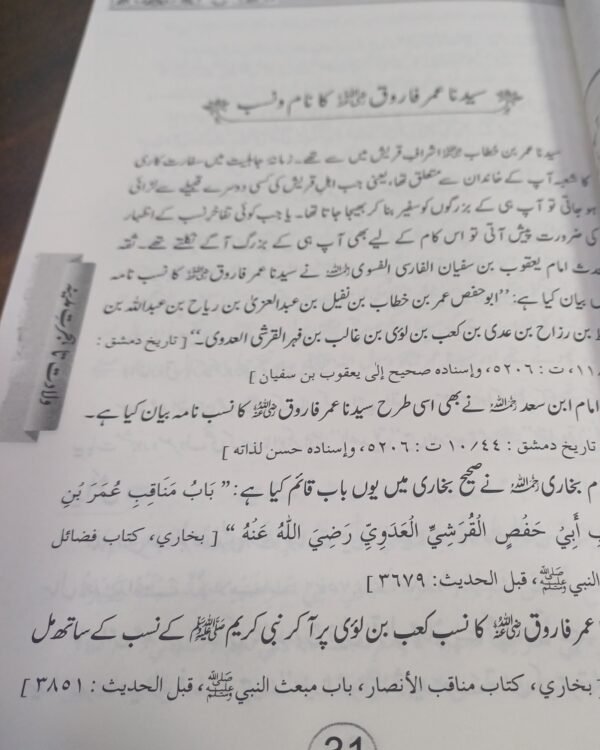 سیدنا عمر فاروق رضی اللہ عنہ کا نام و نسب
سیدنا عمر بن خطاب رضی اللہ عنہ اشرافِ قریش میں سے تھے۔ زمانۂ جاہلیت میں سفارت کاری
کا شعبہ آپ کے خاندان سے متعلق تھا، یعنی جب اہلِ قریش کی کسی دوسرے قبیلے سے لڑائی
ہو جاتی تو آپ ہی کے بزرگوں کو سفیر بنا کر بھیجا جاتا تھا۔ یا جب کوئی تفاخرِ نسب کے اظہار
کی ضرورت پیش آتی تو اس کام کے لیے بھی آپ ہی کے بزرگ آگے نکلتے تھے۔ ثقہ
امام یعقوب بن سفیان الفارسی الفسوی رحمہ اللہ نے سیدنا عمر فاروق رضی اللہ عنہ کا نسب نامہ
بیان کیا ہے: ’’ابوحفص عمر بن خطاب بن نفیل بن عبدالعزیٰ بن ریاح بن عبداللہ بن
بن رزاح بن عدی بن کعب بن لؤی بن غالب بن فہر القرشی العدوی۔‘‘ [ تاریخ دمشق :
ت : ٥٢٠٦، وإسناده صحيح إلى يعقوب بن سفيان ]
امام ابن سعد رحمہ اللہ نے بھی اسی طرح سیدنا عمر فاروق رضی اللہ عنہ کا نسب نامہ بیان کیا ہے۔
تاریخ دمشق : ١٠/٤٤ ت : ٥٢٠٦، وإسناده حسن لذاته ]
بخاری رحمہ اللہ نے صحیح بخاری میں یوں باب قائم کیا ہے: ” بَابُ مَنَاقِبِ عُمَرَ بْنِ
أَبِيْ حَفْصٍ الْقُرَشِيِّ الْعَدَوِيِّ رَضِيَ اللّٰهُ عَنْهُ “ [ بخاري، كتاب فضائل
النبي ﷺ، قبل الحديث : ٣٦٧٩ ]
عمر فاروق رضی اللہ عنہ کا نسب کعب بن لؤی پر آ کر نبی کریم ﷺ کے نسب کے ساتھ مل
بخاري، كتاب مناقب الأنصار، باب مبعث النبي ﷺ، قبل الحديث : ٣٨٥١ ]
ولادت تا ہجرتِ مدینہ
31